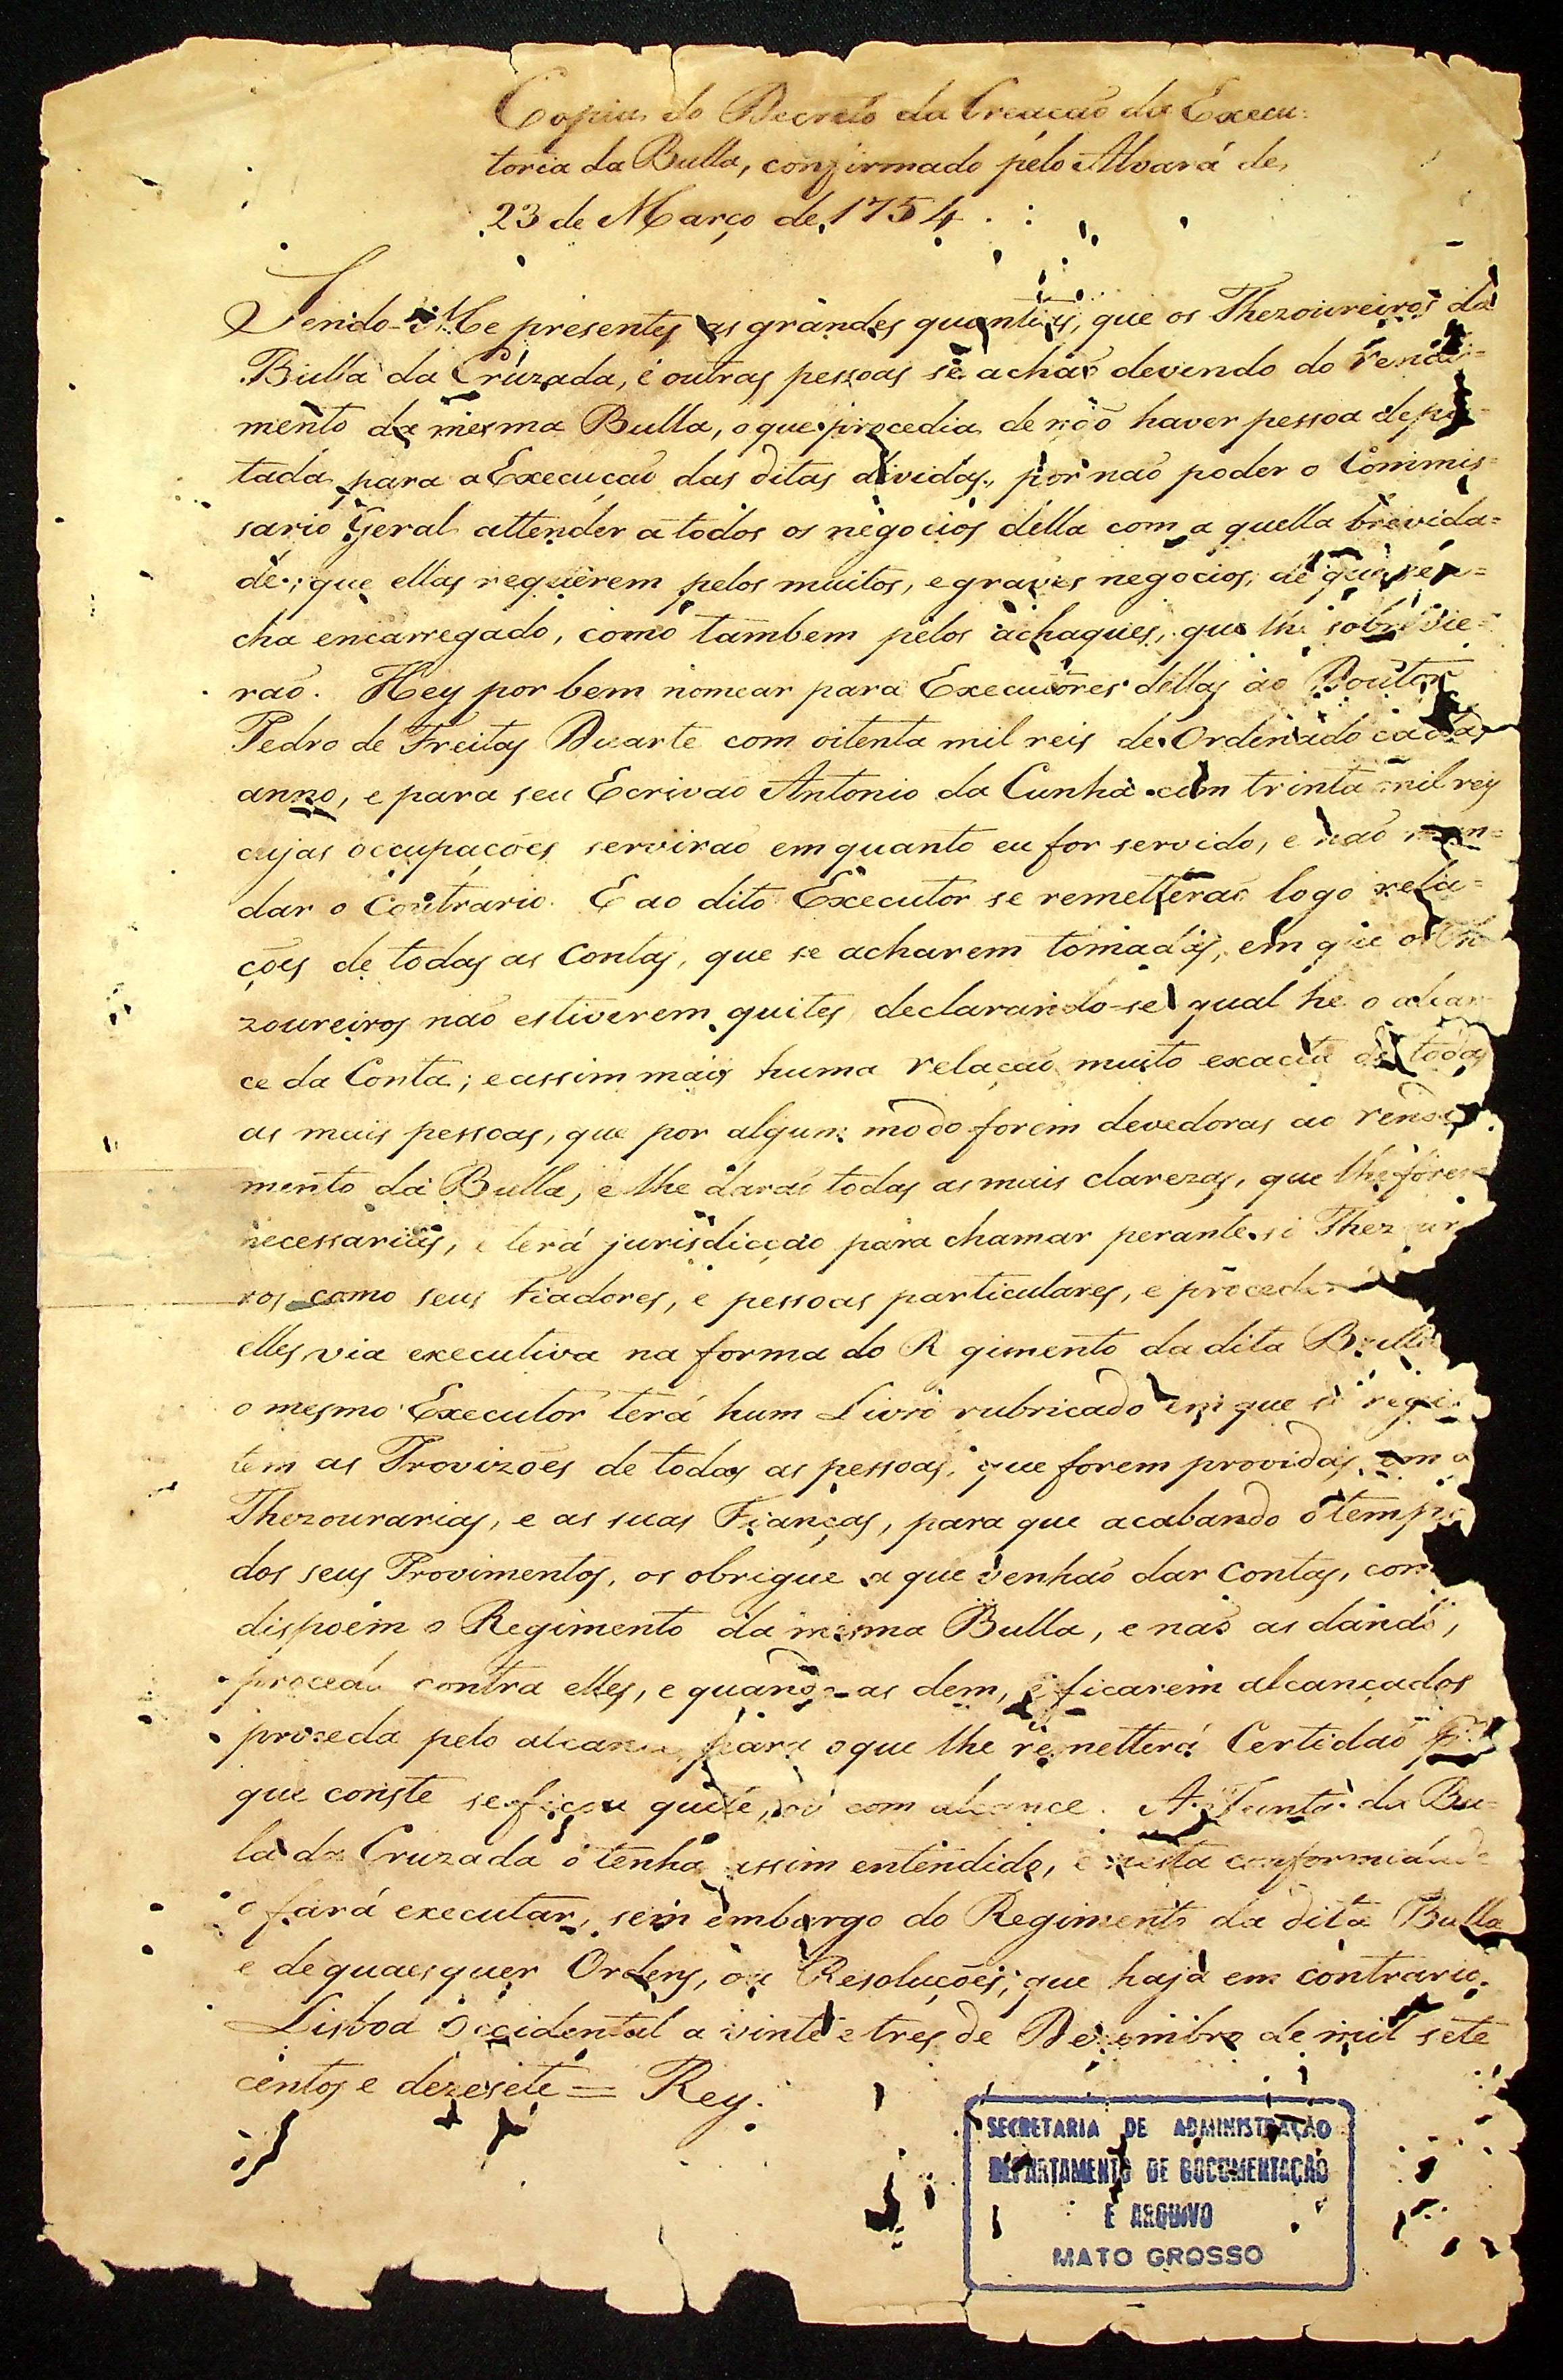 Copia do Decreto da Creação da Execu:
toria da Bulla, confirmado pelo Alvará de
23 de Março de 1754.
Sendo-Me presentes as grandes quantias, que os Thezoureiros da
Bulla da Cruzada, e outras pessoas se achão devendo do rendi=
mento da mesma Bulla, o que procedia de não haver pessoa depu=
tada para a Execução das ditas dividas, por não poder o Commis=
sario Geral attender a todos os negocios della com a quella brevida=
de; que ellas requerem pelos muitos, e graves negocios, de que se a=
cha encarregado, como tambem pelos achaques, que lhe sobrevie=
rão. Hey por bem nomear para Executores dellas ao Doutor
Pedro de Freitas Duarte com oitenta mil reis de Ordenado cada
anno, e para seu Ecrivão Antonio da Cunha com trinta mil reis
cujas occupações servirão em quanto eu for servido, e não man=
dar o Contrario. E ao dito Executor se remetterão logo rela=
ções de todas as Contas, que se acharem tomadas, em que os The
zoureiros não estiverem quites declarando-se qual he o alcan
ce da Conta; e assim mais huma relação muito exacta de todas
as mais pessoas, que por algum modo forem devedoras ao rendi
mento da Bulla, e lhe darão todas as mais clarezas, que lhe forem
necessarias, e terá jurisdicção para chamar perante si Thezourei
ros como seus Fiadores, e pessoas particulares, e proceder
elles via executiva na forma do Regimento da dita Bulla
o mesmo Executor terá hum Livro rubricado em que se regis
tem as Provizões de todas as pessoas, que forem providas em a
Thezourarias, e as suas Fianças, para que acabando o tempo
dos seus Provimentos, os obrigue a que venhão dar Contas, com
dispoem o Regimento da mesma Bulla, e não as dando,
proceda contra elles, e quando as dem, e ficarem alcançados
proceda pelo alcance, para o que lhe remetterá Certidão p.r
que conste se ficou quite, ou com alcance. A Junta da Bu=
la da Cruzada o tenha assim entendido, e nesta conformidade
o fará executar, sem embargo do Regimento da dita Bulla
e de quaesquer Ordens, ou Resoluções, que haja em contrario.
Lisboa Occidental a vinte e tres de Dezembro de mil sete
centos e dezesete = Rey.
SECRETARIA DE ADMINISTRAÇÃO
DEPARTAMENTO DE DOCUMENTAÇÃO
E ARQUIVO
MATO GROSSO